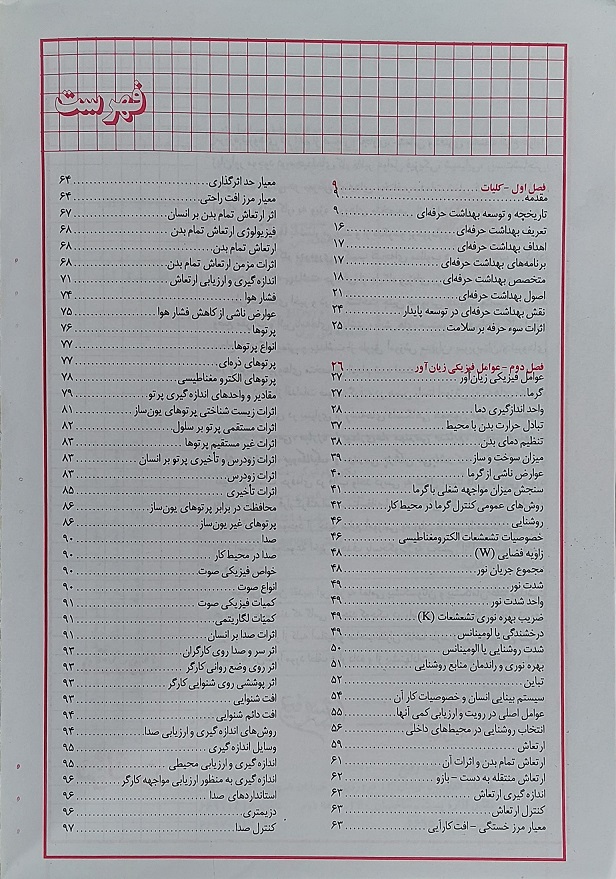 فهرست
فصل اول – کلیات ۹
مقدمه ۹
تاریخچه و توسعه بهداشت حرفه‌ای ۹
تعریف بهداشت حرفه‌ای ۱۶
اهداف بهداشت حرفه‌ای ۱۷
برنامه‌های بهداشت حرفه‌ای ۱۷
متخصص بهداشت حرفه‌ای ۱۸
اصول بهداشت حرفه‌ای ۲۱
نقش بهداشت حرفه‌ای در توسعه پایدار ۲۴
اثرات سوء حرفه بر سلامت ۲۵
فصل دوم – عوامل فیزیکی زیان آور ۲۶
عوامل فیزیکی زیان‌آور ۲۷
گرما ۲۷
واحد اندازگیری دما ۲۸
تبادل حرارت بدن با محیط ۳۷
تنظیم دمای بدن ۳۸
میزان سوخت و ساز ۳۹
عوارض ناشی از گرما ۴۰
سنجش میزان مواجهه شغلی با گرما ۴۱
روش‌های عمومی کنترل گرما در محیط کار ۴۲
روشنایی ۴۶
خصوصیات تشعشعات الکترومغناطیسی ۴۶
زاویه فضایی (W) ۴۸
مجموع جریان نور ۴۸
شدت نور ۴۹
واحد شدت نور ۴۹
ضریب بهره نوری تشعشعات (K) ۴۹
درخشندگی یا لومینانس ۴۹
شدت روشنایی یا الومینانس ۵۰
بهره نوری و راندمان منابع روشنایی ۵۱
تباین ۵۲
سیستم بینایی انسان و خصوصیات کار آن ۵۴
عوامل اصلی در رویت و ارزیابی کمی آنها ۵۵
انتخاب روشنایی در محیط‌های داخلی ۵۶
ارتعاش ۵۹
ارتعاش تمام بدن و اثرات آن ۶۱
ارتعاش منتقله به دست – بازو ۶۲
اندازه گیری ارتعاش ۶۳
کنترل ارتعاش ۶۳
معیار مرز خستگی – افت کارآیی ۶۳
معیار حد اثرگذاری ۶۴
معیار مرز افت راحتی ۶۴
اثر ارتعاش تمام بدن بر انسان ۶۷
فیزیولوژی ارتعاش تمام بدن ۶۸
ارتعاش تمام بدن ۶۸
اثرات مزمن ارتعاش تمام بدن ۶۸
اندازه گیری و ارزیابی ارتعاش ۷۱
فشار هوا ۷۴
عوارض ناشی از کاهش فشار هوا ۷۵
پرتوها ۷۶
انواع پرتوها ۷۷
پرتوهای ذره‌ای ۷۷
پرتوهای الکترو مغناطیسی ۷۸
مقادیر و واحدهای اندازه گیری پرتو ۷۹
اثرات زیست شناختی پرتوهای یون‌ساز ۸۱
اثرات مستقمی پرتو بر سلول ۸۲
اثرات غیر مستقیم پرتوها ۸۳
اثرات زودرس و تأخیری پرتو بر انسان ۸۳
اثرات زودرس ۸۳
اثرات تأخیری ۸۵
محافظت در برابر پرتوهای یون‌ساز ۸۶
پرتوهای غیر یون‌ساز ۸۶
صدا ۹۰
صدا در محیط کار ۹۰
خواص فیزیکی صوت ۹۰
انواع صوت ۹۰
کمیات فیزیکی صوت ۹۱
کمیّات لگاریتمی ۹۱
اثرات صدا بر انسان ۹۱
اثر سر و صدا روی کارگران ۹۳
اثر روی وضع روانی کارگر ۹۳
اثر پوششی روی شنوایی کارگر ۹۳
افت شنوایی ۹۳
افت دائم شنوایی ۹۴
روش‌های اندازه گیری و ارزیابی صدا ۹۴
وسایل اندازه گیری ۹۵
اندازه گیری و ارزیابی محیطی ۹۵
اندازه گیری به منظور ارزیابی مواجهه کارگر ۹۶
استانداردهای صدا ۹۶
دزیمتری ۹۶
کنترل صدا ۹۷